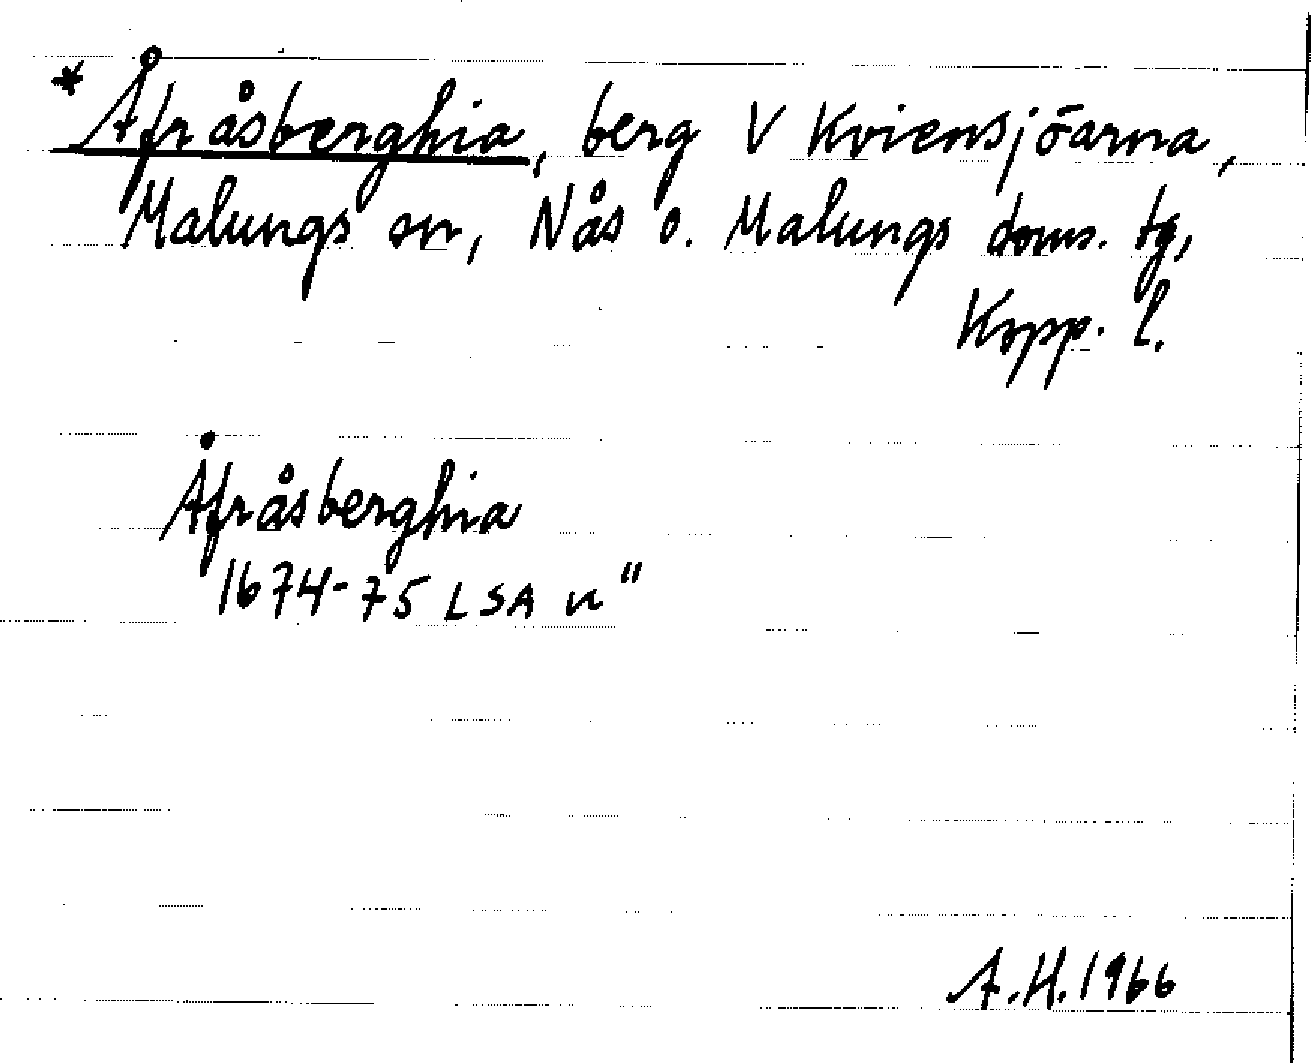 * Åfråsberghia, berg V Kviensjöarna,
Malungs sn, Nås o. Malungs doms. tg,
Kopp. l.
Åfråsberghia
1674-75 LSA u"
A.H. 1966